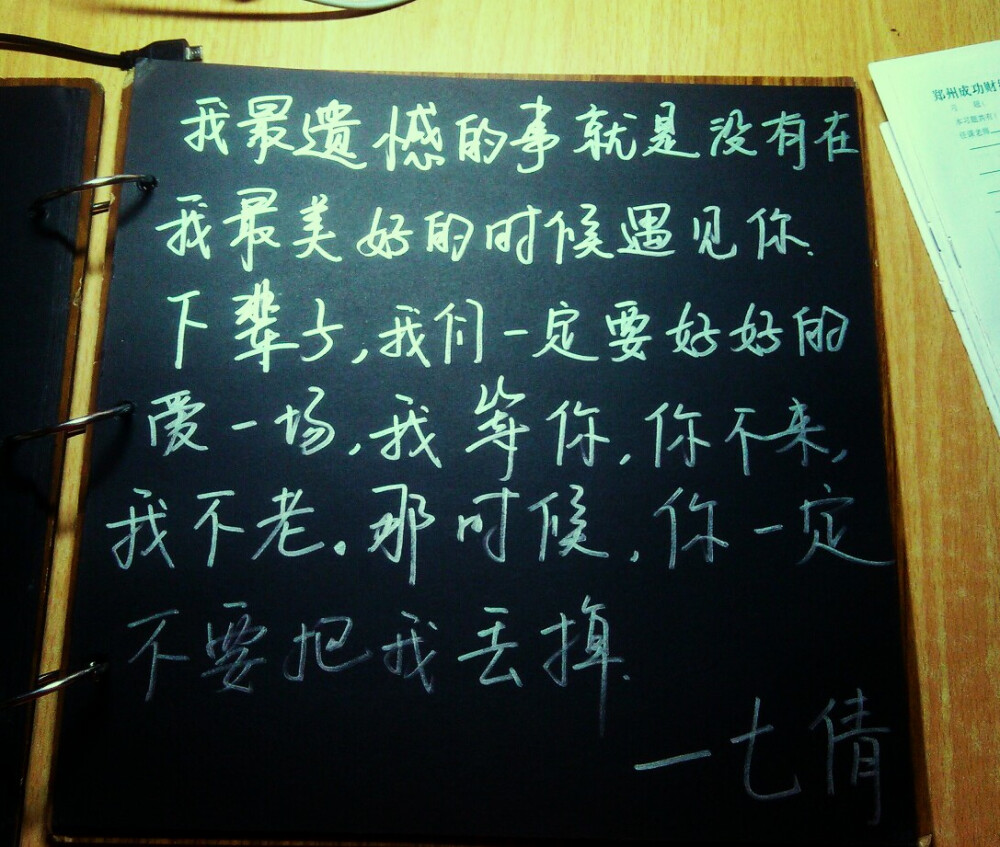 我最遗憾的事就是没有在
我最美好的时候遇见你.
下辈子,我们一定要好好的
爱一场,我等你,你不来,
我不老.那时候,你一定
不要把我丢掉.
一七倩
郑州成功财